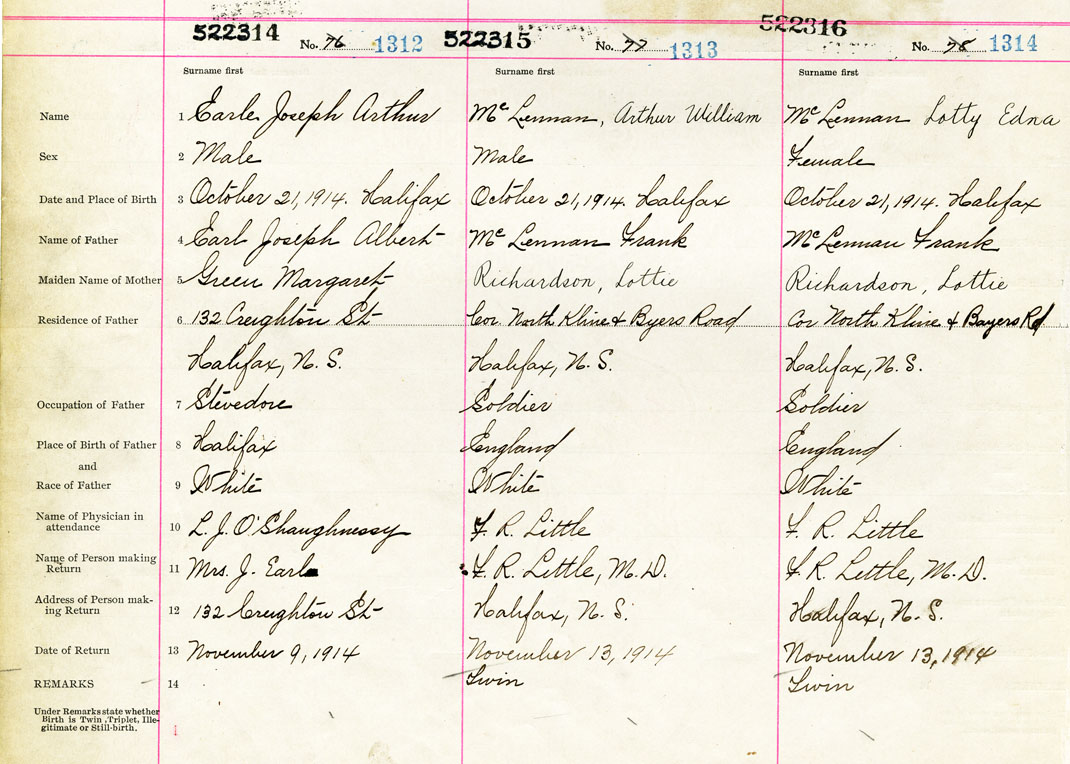 522314 No. 76 1312 522315 No. 77 1313 522316 No. 78 1314
Surname first Surname first Surname first
Name 1 Earle Joseph Arthur McLennan, Arthur William McLennan Lotty Edna
Sex 2 Male Male Female
Date and Place of Birth 3 October 21, 1914. Halifax October 21, 1914. Halifax October 21, 1914. Halifax
Name of Father 4 Earl Joseph Albert McLennan Frank McLennan Frank
Maiden Name of Mother 5 Green Margaret Richardson, Lottie Richardson, Lottie
Residence of Father 6 132 Creighton St Cor. North Kline & Byers Road Cor North Kline & Bayers Rd
Halifax, N. S. Halifax, N. S. Halifax, N. S.
Occupation of Father 7 Stevedore Soldier Soldier
Place of Birth of Father 8 Halifax England England
and
Race of Father 9 White White White
Name of Physician in
attendance 10 L. J. O'Shaughnessy F. R. Little F. R. Little
Name of Person making
Return 11 Mrs. J. Earle F. R. Little, M.D. F. R. Little, M.D.
Address of Person mak-
ing Return 12 132 Creighton St Halifax, N. S. Halifax, N. S.
Date of Return 13 November 9, 1914 November 13, 1914 November 13, 1914
REMARKS 14 Twin Twin
Under Remarks state whether
Birth is Twin, Triplet, Ille-
gitimate or Still-birth.